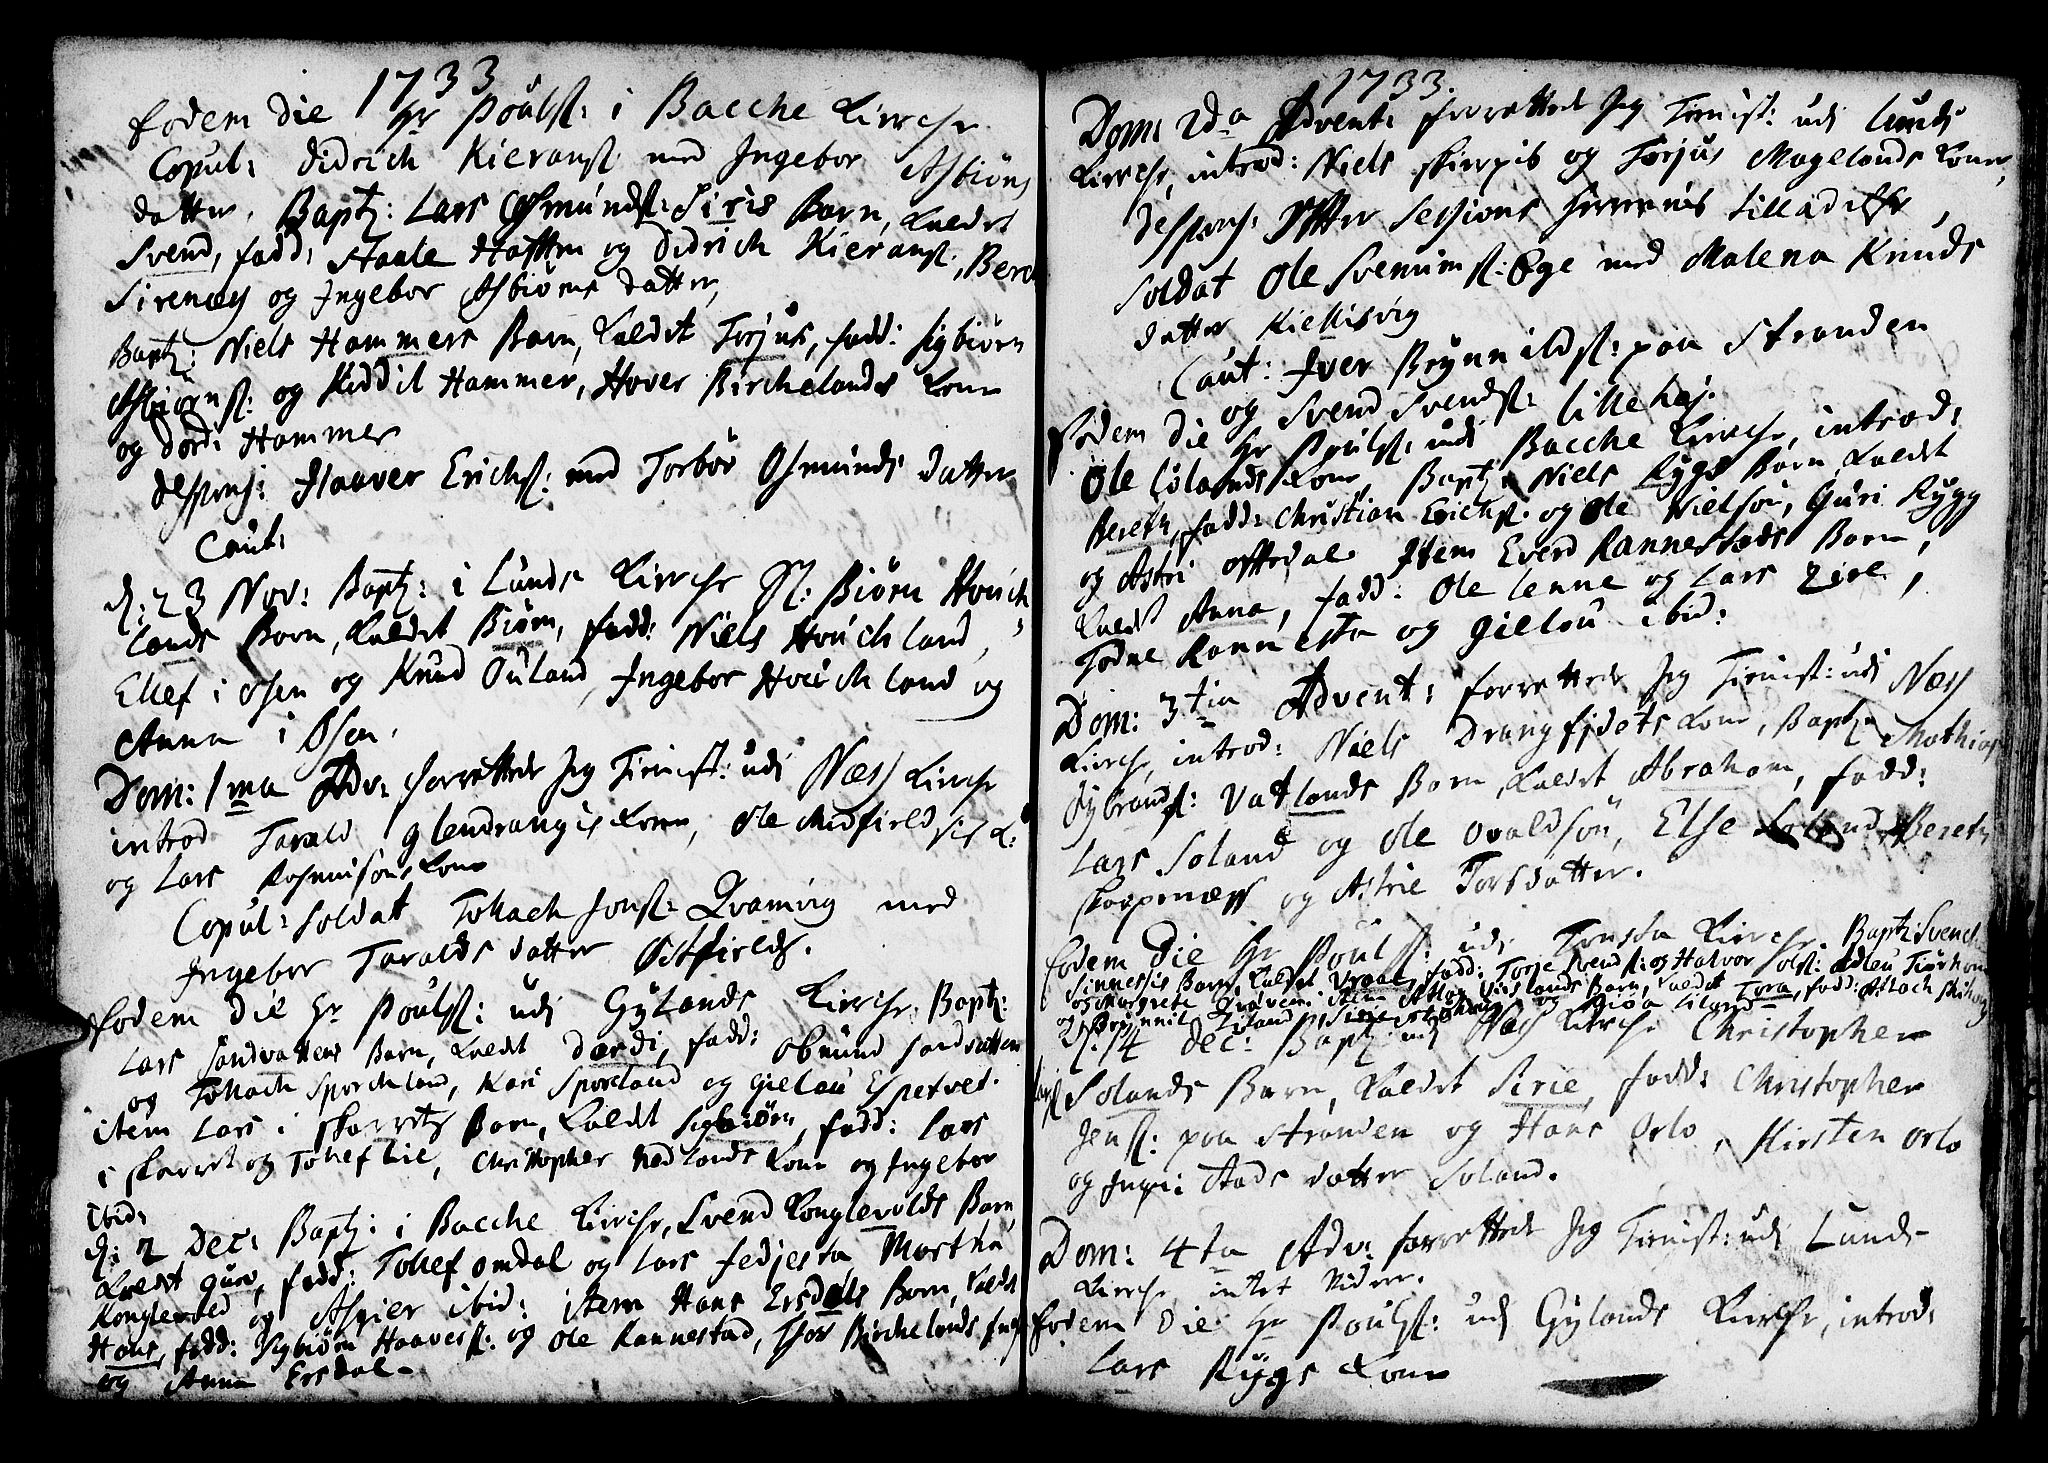 1733
Eodem Die Hr Poulss: i Bacche Kirche
Copul: Didrich Kieranss: med Ingebor Asbiöns
datter, Bapt: Lars Osmundss: Siris Barn, kaldet
Svend, fadd: Staale Haaften og Didrich Kieranss:, Bere
Sirenæs og Ingebor Asbiöns datter,
Bapt: Niels Hammers Barn, kaldet Torjus, fadd: Sigbiörn
Asbiörnss: og Kiddil Hammer, Hover Birchelands Kone
og Dord: Hammer
Desspens: Haaver Erichss: med Torbör Osmunds datter
Caut:
d: 23 Nov: Bapt: i Lunds Kirche Sl: Biörn Hvich
lands Barn, kaldet Biörn, fadd: Niels Hvichland,
Ellef i Osen og Knud Ouland, Ingebor Hvichland og
Anna i Osen.
Dom: 1ma Adv: forrettede Jeg Tienist: udi Næss Kirche
introd Tarald Glendrangis Kone, Ole Midfields K:
og Lars Rosmisons Kone
Copul: Soldat Tollach Jonss: Qvamvig med
Ingebor Taralds datter Østfields.
Eodem Die Hr Poulss: udi Gylands Kirche, Bapt:
Lars Sandvattens Barn, kaldet Dordi, fadd: Obmund Sandvatten
og Tollach Sporcheland, Kari Sporeland og Gielau Espetvet.
item Lars i Skarrets Barn, kaldet Sigbiörn, fadd: Lars
i Skarret og Tollef Lie, Christopher Nedlands Kone og Ingebor
ibid:
d: 2 Dec: Bapt: i Bacche Kirche, Svend Konglevolds Barn
kaldet Guro, fadd: Tollef Omdal og Lars Fedjesta Martha
Konglevold og Asgier ibid: item Hans Ersdals Barn, kaldet
Hans, fadd: Sigbiörn Haaverss: og Ole Rannestad, Thor Birchelands
og Anna Ersdal
1733.
Dom: 2da Advent: forrettede Jeg Tienist: udi Lunds
Kirche, introd: Niels Skierpis og Torjus Magelands Koner,
Despens: Efter Sessions Herrernis Tilladelse,
Soldat Ole Svenimss: Ege med Malena Knuds
datter Kiellisvig
Caut: Iver Brynnildss: paa Stranden
og Svend Svendss: Lillehej.
Eodem Die Hr Poulss: udi Bacche Kirche, introd:
Ole Lölands Kone, Bapt: Niels Rygs Barn kaldet
Bereth, fadd: Christian Erichss: og Ole Nielsön, Guri Rygg
og Astri Oftedal. Item Everd Rannestads Barn,
kaldet Anna, fadd: Ole Lenne og Lars Eiel,
Todne Rannesta og Gielou ibid:
Dom: 3tia Advent: forrettede Jeg Tienist: udi Næss
Kirche, introd: Niels Drangfjdets Kone, Bapt: Mathias
Sybrandss: Vatlands Barn, kaldet Abraham, fadd:
Lars Soland og Ole Ovaldsön, Else Loland, Bereth
Skarpenæss og Astrie Torsdatter.
Eodem Die Hr Pouls: udi Tonsta Kirche Bapt: Svend
Sinnessis Barn, kaldet Vraal, fadd: Torje Svendss: og Halvor Olss: Edleu Tiörhom
og Margrete Qvæven. Item Barn, kaldet Tora, fadd: Aslach
og Brynnil
d: 14 Dec: Bapt: udi Næss Kirche Christopher
Solands Barn, kaldet Sirie, fadd: Christopher
Jenss: paa Stranden og Hans Orlo, Kirsten Orlo
og Inger Aads datter Soland.
Dom: 4ta Adv: forrettede Jeg Tienist: udi Lunds
Kirche intet videre.
Eodem Die Hr Poulss: udi Gylands Kirche, introd:
Lars Rygs Kone